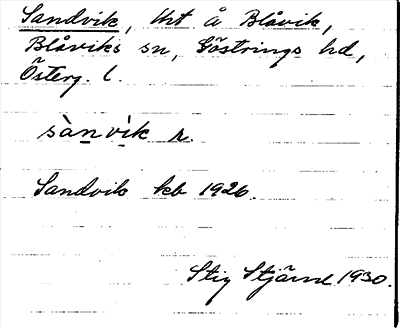 Sandvik, lht å Blåvik,
Blåviks sn, Göstrings hd,
Österg. l.
sànvìk n.
Sandvik kb 1926.
Stig Stjärne 1930.